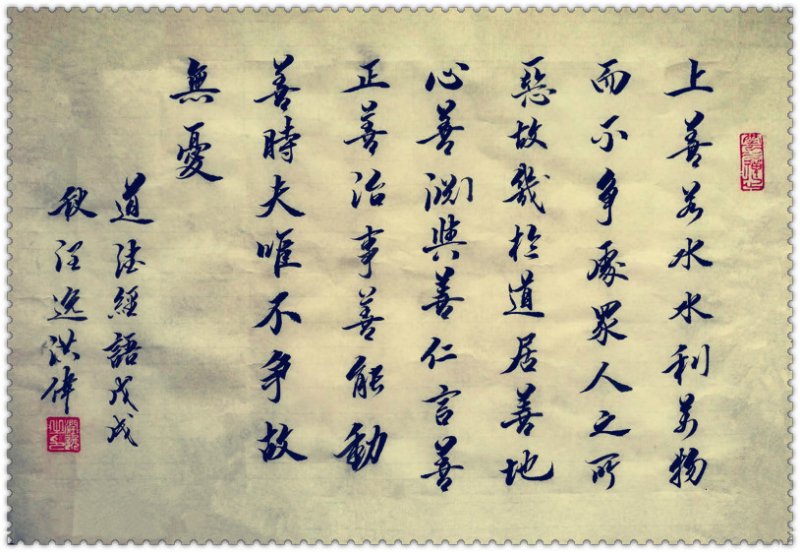 上善若水水利萬物
而不争處眾人之所
惡故幾於道居善地
心善淵與善仁言善
正善治事善能動
善時夫唯不争故
無憂
道德經語戊戌
秋汪逸洪偉